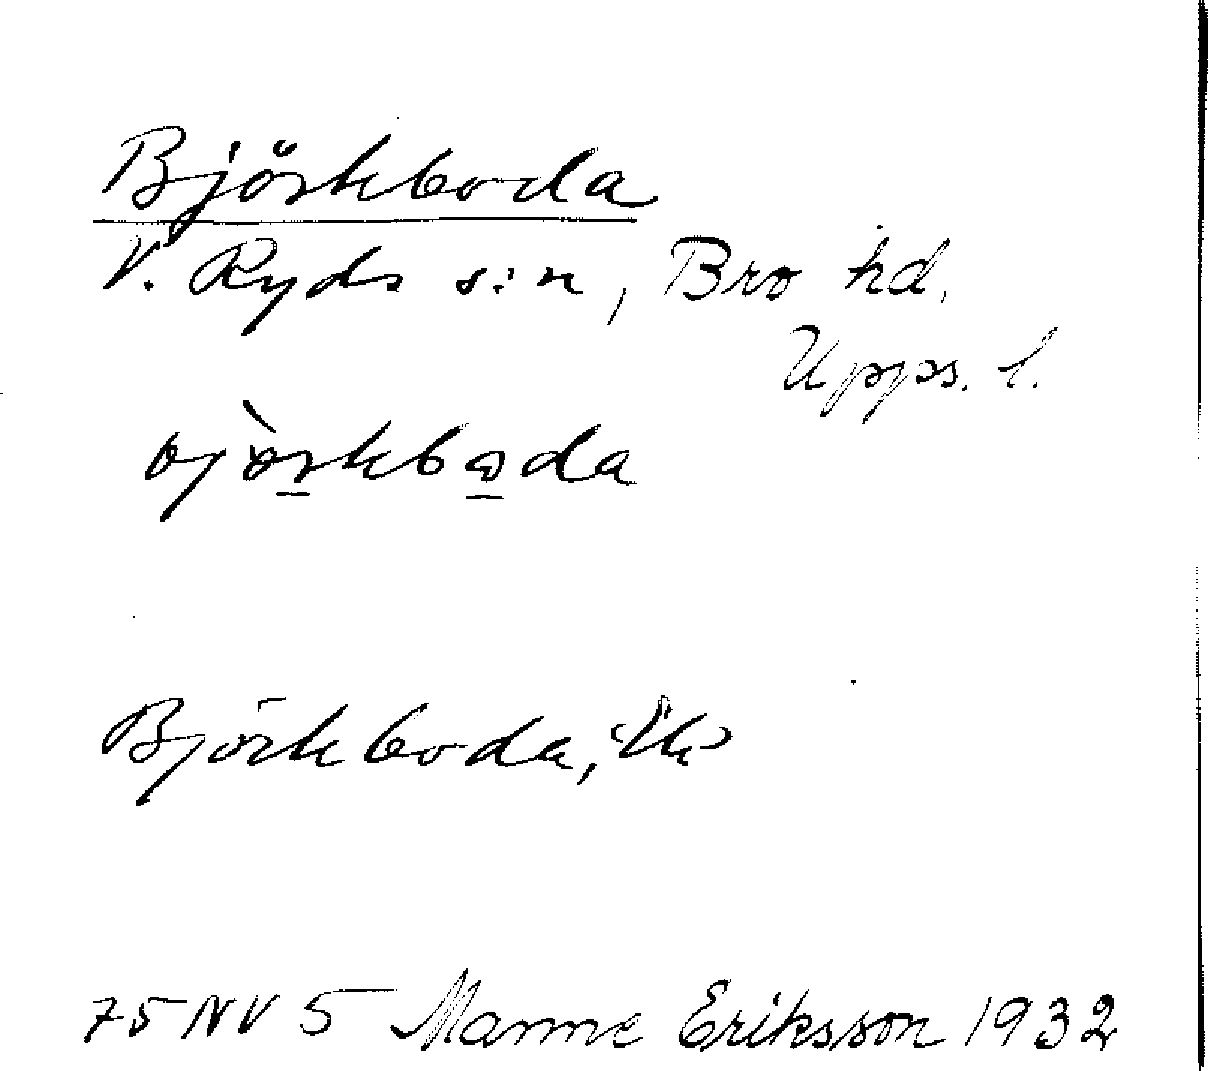 Björkboda
V. Ryds s:n, Bro hd.
Upps. l.
bjòrkboda
Björkboda, Ek
75 NV 5 Manne Eriksson 1932